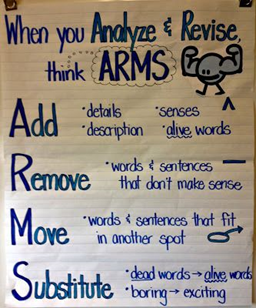 When you Analyze & Revise,
think ARMS
Add
• details • senses
• description • alive words
Remove
• words & sentences
that don't make sense
Move
• words & sentences that fit
in another spot
Substitute
• dead words → alive words
• boring → exciting